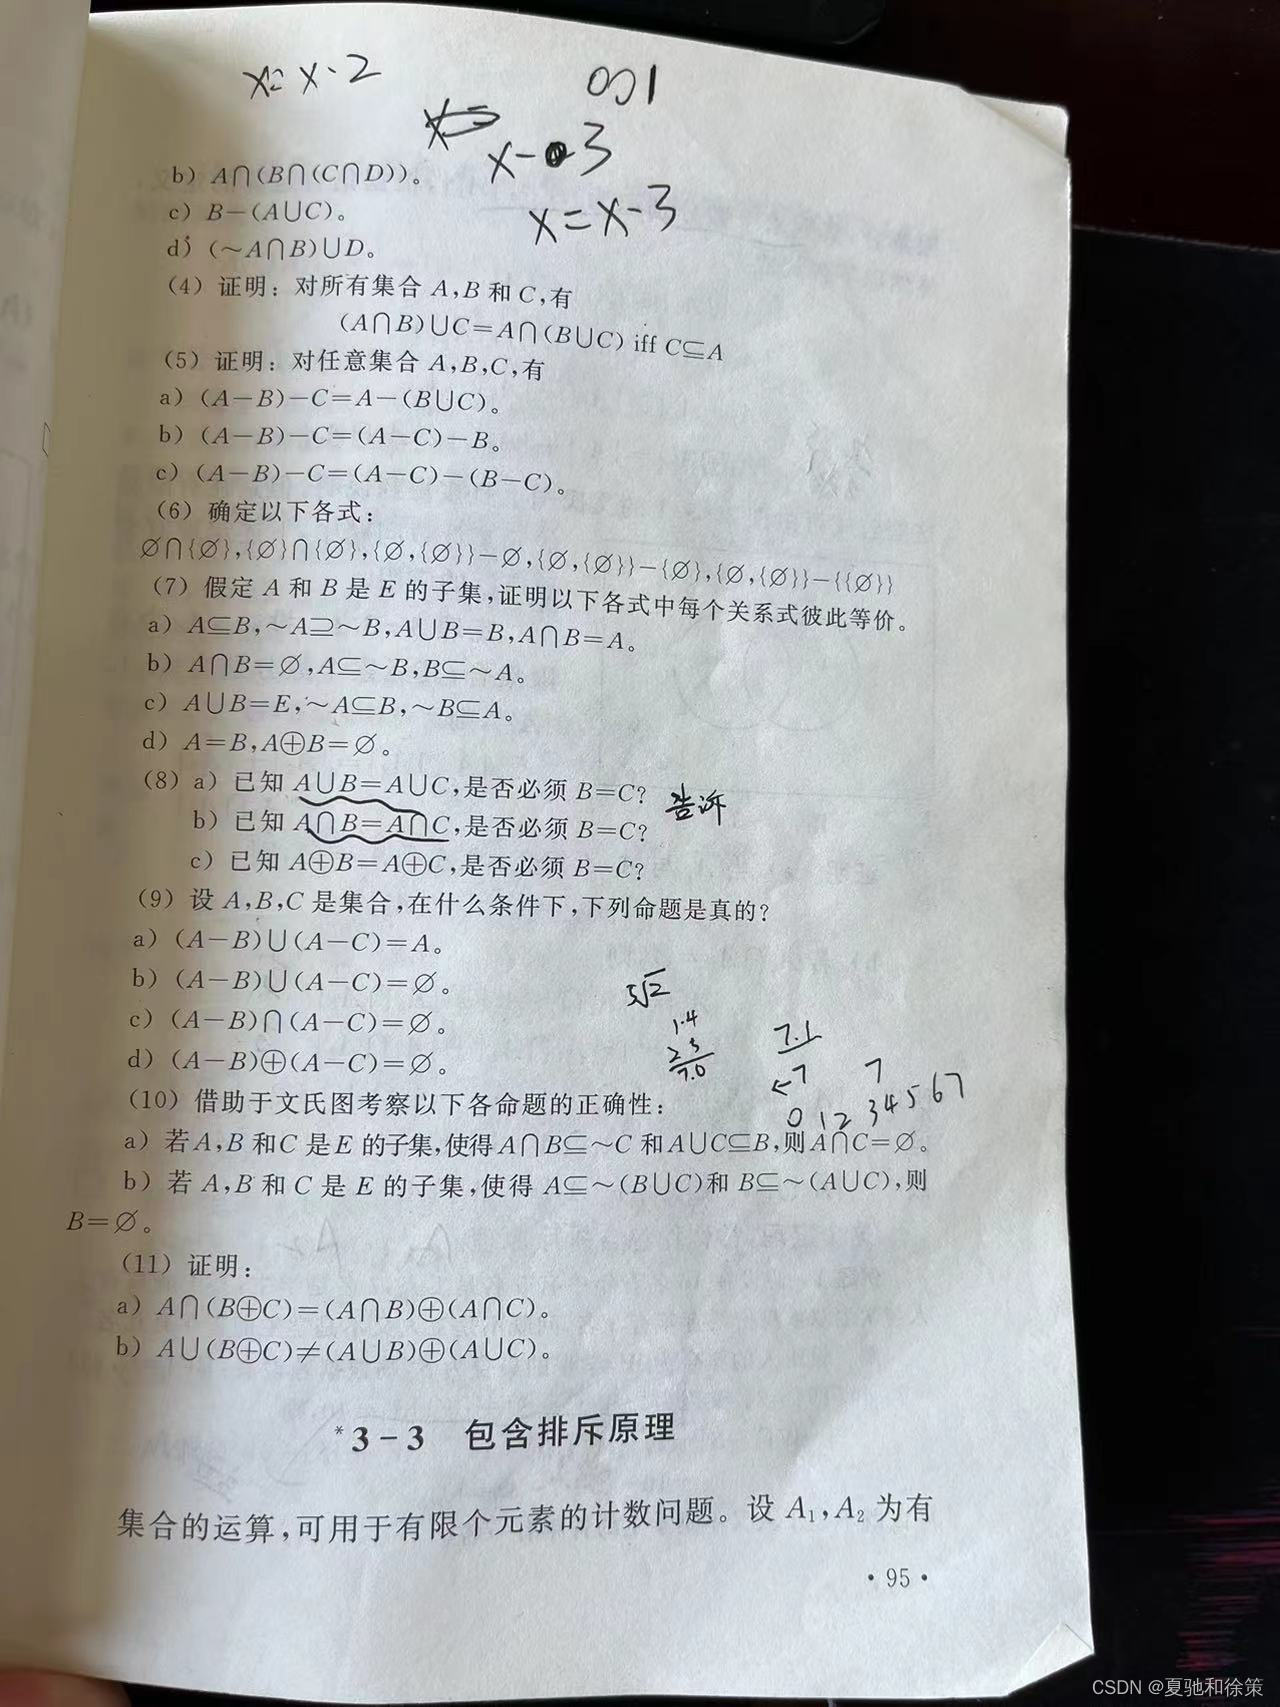 x= x-2
001
x=
x-3
b) A∩(B∩(C∩D))。
c) B-(A∪C)。
x=x-3
d) (~A∩B)∪D。
(4) 证明：对所有集合 A,B 和 C,有
(A∩B)∪C=A∩(B∪C) iff C⊆A
(5) 证明：对任意集合 A,B,C,有
a) (A-B)-C=A-(B∪C)。
b) (A-B)-C=(A-C)-B。
c) (A-B)-C=(A-C)-(B-C)。
(6) 确定以下各式：
∅∩{∅},{∅}∩{∅},{∅,{∅}}-∅,{∅,{∅}}-{∅},{∅,{∅}}-{{∅}}
(7) 假定 A 和 B 是 E 的子集,证明以下各式中每个关系式彼此等价。
a) A⊆B,~A⊇~B,A∪B=B,A∩B=A。
b) A∩B=∅,A⊆~B,B⊆~A。
c) A∪B=E,~A⊆B,~B⊆A。
d) A=B,A⊕B=∅。
(8) a) 已知 A∪B=A∪C,是否必须 B=C?
告诉
b) 已知 A∩B=A∩C,是否必须 B=C?
c) 已知 A⊕B=A⊕C,是否必须 B=C?
(9) 设 A,B,C 是集合,在什么条件下,下列命题是真的?
a) (A-B)∪(A-C)=A。
b) (A-B)∪(A-C)=∅。
5√2
c) (A-B)∩(A-C)=∅。
1.4
7.1
d) (A-B)⊕(A-C)=∅。
7.0
←7
7
(10) 借助于文氏图考察以下各命题的正确性：
0 1 2 3 4 5 6 7
a) 若A,B 和C 是E 的子集,使得A∩B⊆~C 和A∪C⊆B,则A∩C=∅。
b) 若 A,B 和 C 是 E 的子集,使得 A⊆~(B∪C)和 B⊆~(A∪C),则
B=∅。
(11) 证明：
a) A∩(B⊕C)=(A∩B)⊕(A∩C)。
b) A∪(B⊕C)≠(A∪B)⊕(A∪C)。
*3-3 包含排斥原理
集合的运算,可用于有限个元素的计数问题。设 A₁,A₂ 为有
·95·
CSDN @夏驰和徐策